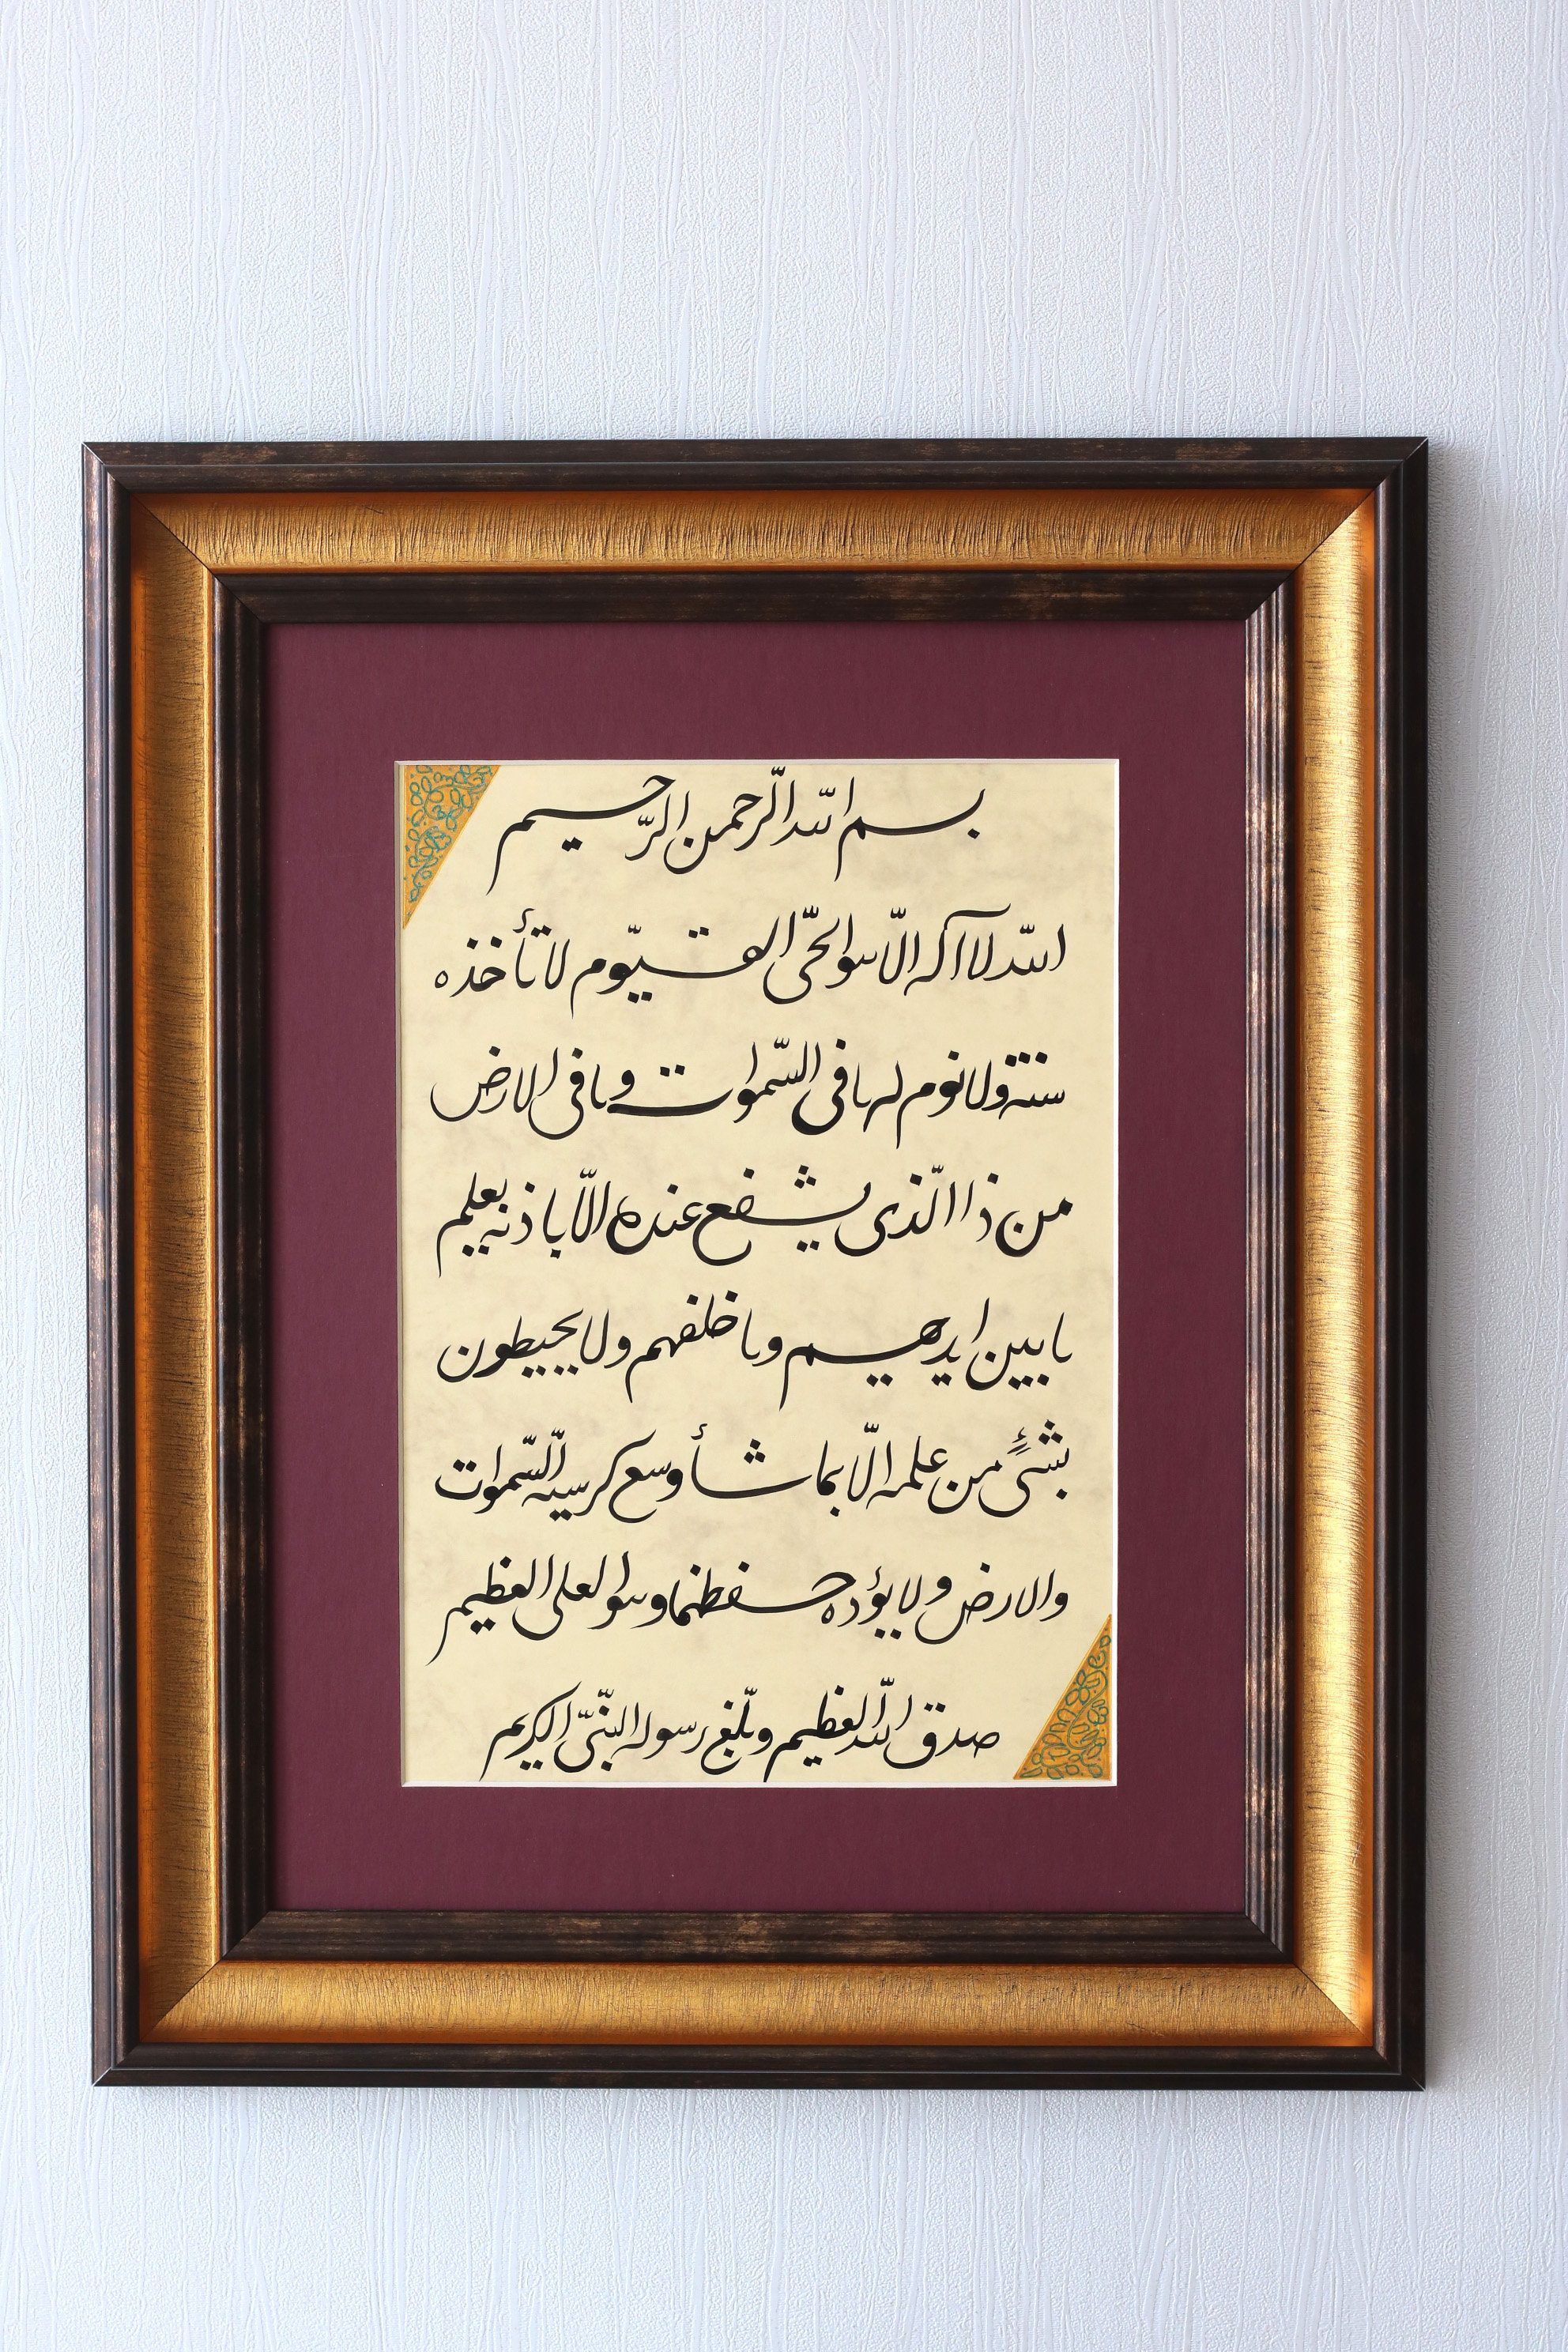 بسم الله الرحمن الرّحيم
الله لا اله الّا هو الحىّ القيّوم لا تأخذه
سنة ولا نوم له ما فى السّموات وما فى الارض
من ذا الّذى يشفع عنده الّا باذنه يعلم
ما بين ايديهم وما خلفهم ولا يحيطون
بشىءٍ من علمه الّا بما شأ وسع كرسيه السّموات
والارض ولا يؤده حفظهما وهو العلى العظيم
صدق الله العظيم وبلّغ رسوله النّبىّ الكريم